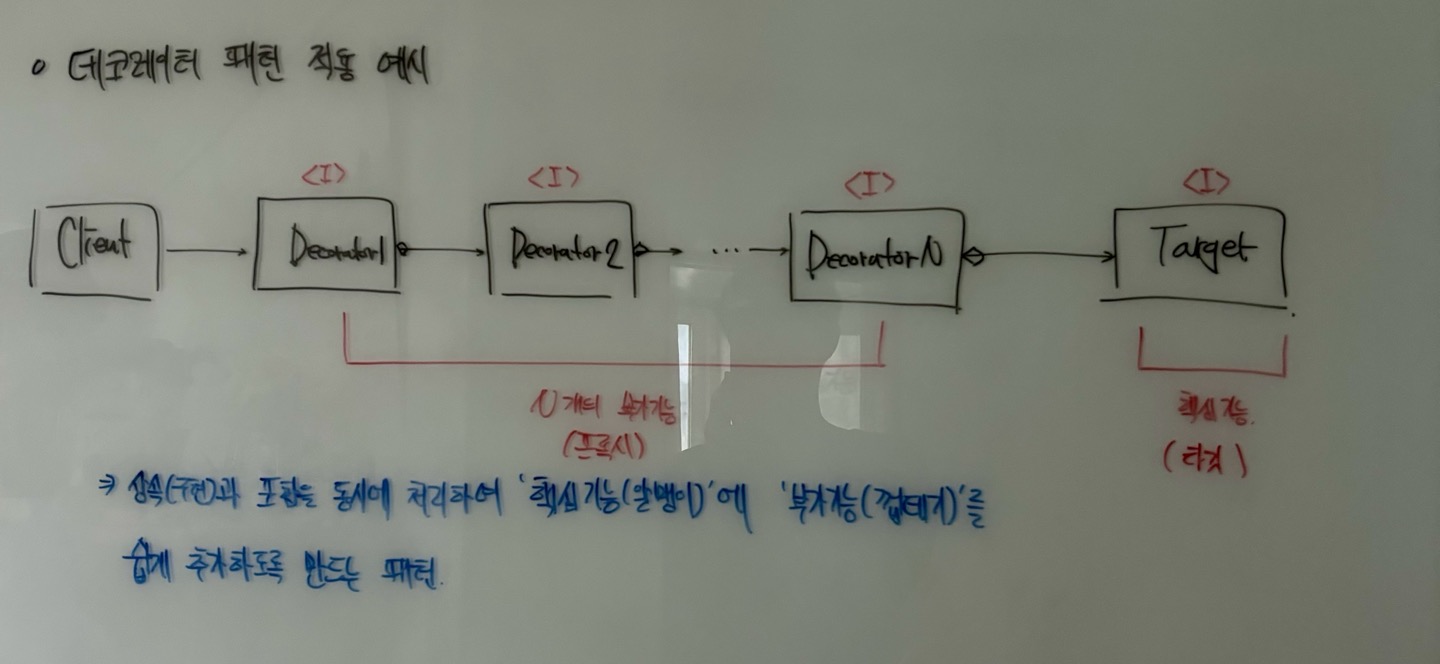 데코레이터 패턴 작동 예시
<I> <I> <I> <I>
Client Decorator1 Decorator2 ... DecoratorN Target
N개의 부가기능
(프록시)
핵심기능.
(타겟)
⇒ 상속(구현)과 포함을 동시에 처리하여 '핵심기능(알맹이)'에 '부가기능(껍데기)'를
쉽게 추가하도록 만드는 패턴.